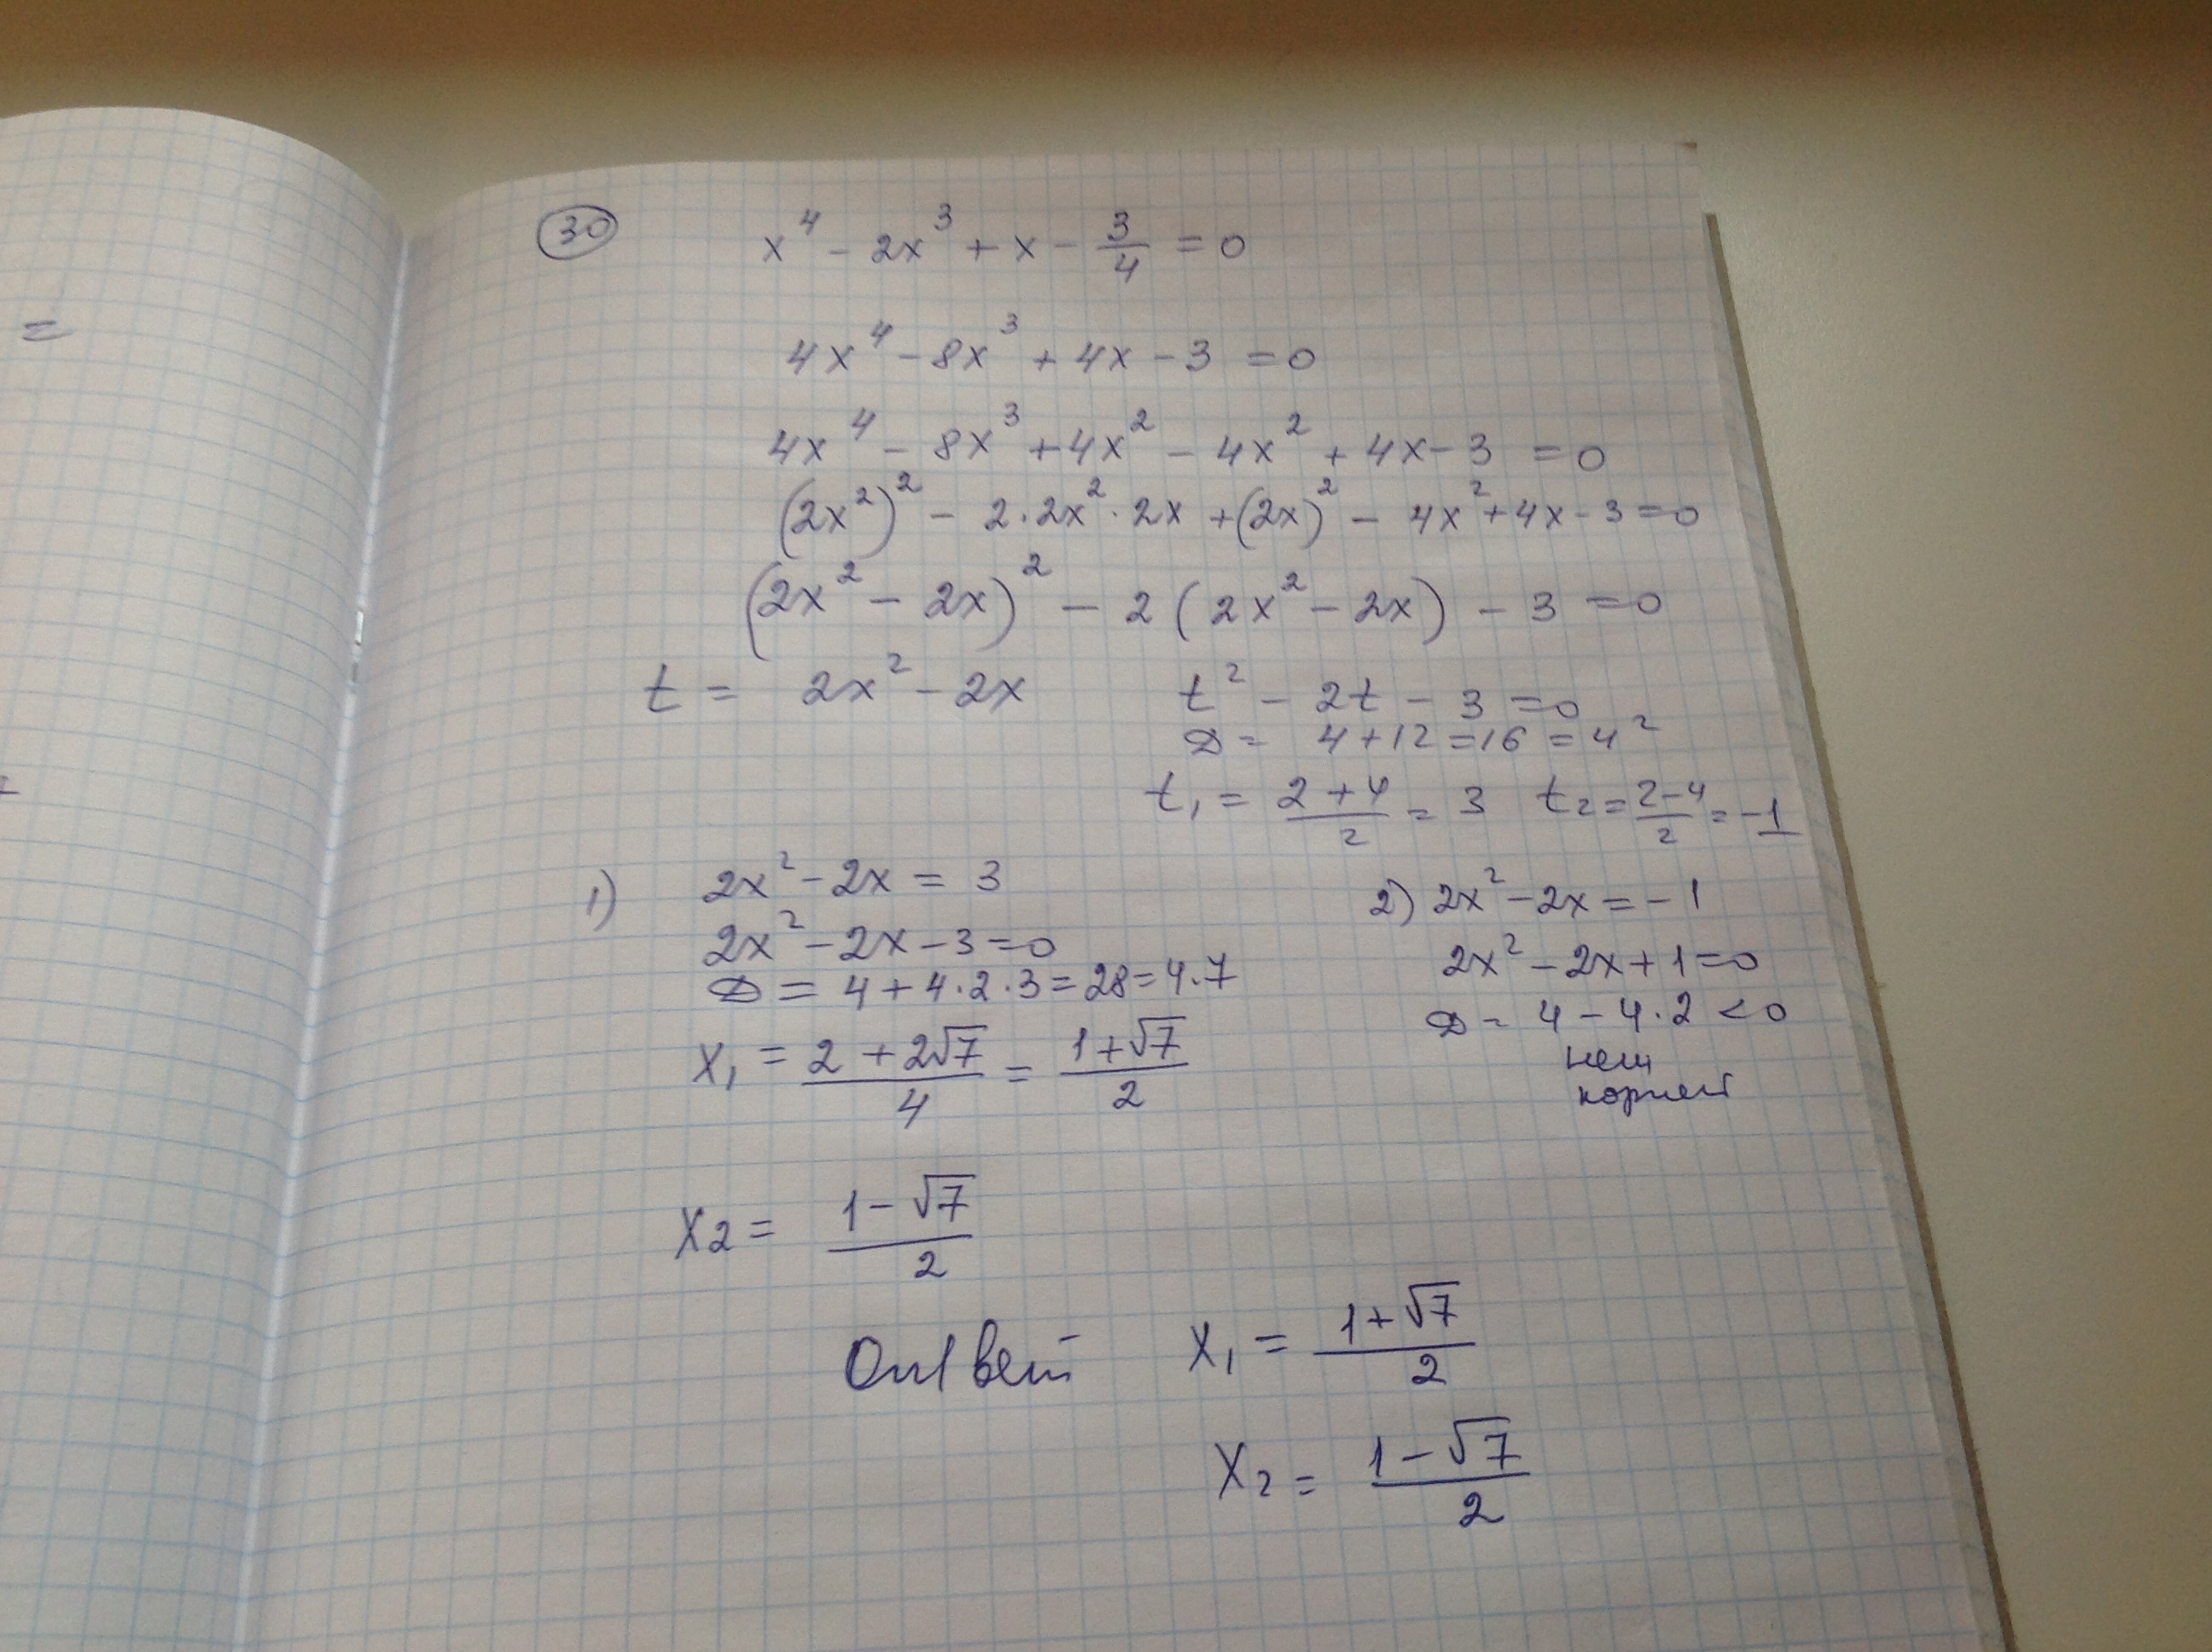 =
30 x⁴ - 2x³ + x - 3/4 = 0
4x⁴ - 8x³ + 4x - 3 = 0
4x⁴ - 8x³ + 4x² - 4x² + 4x - 3 = 0
(2x²)² - 2·2x²·2x + (2x)² - 4x² + 4x - 3 = 0
(2x² - 2x)² - 2(2x² - 2x) - 3 = 0
t = 2x² - 2x
t² - 2t - 3 = 0
D = 4 + 12 = 16 = 4²
t₁ = (2+4)/2 = 3 t₂ = (2-4)/2 = -1
1) 2x² - 2x = 3
2x² - 2x - 3 = 0
D = 4 + 4·2·3 = 28 = 4·7
x₁ = (2 + 2√7)/4 = (1+√7)/2
x₂ = (1-√7)/2
2) 2x² - 2x = -1
2x² - 2x + 1 = 0
D = 4 - 4·2 < 0
нет
корней
Ответ x₁ = (1+√7)/2
x₂ = (1-√7)/2